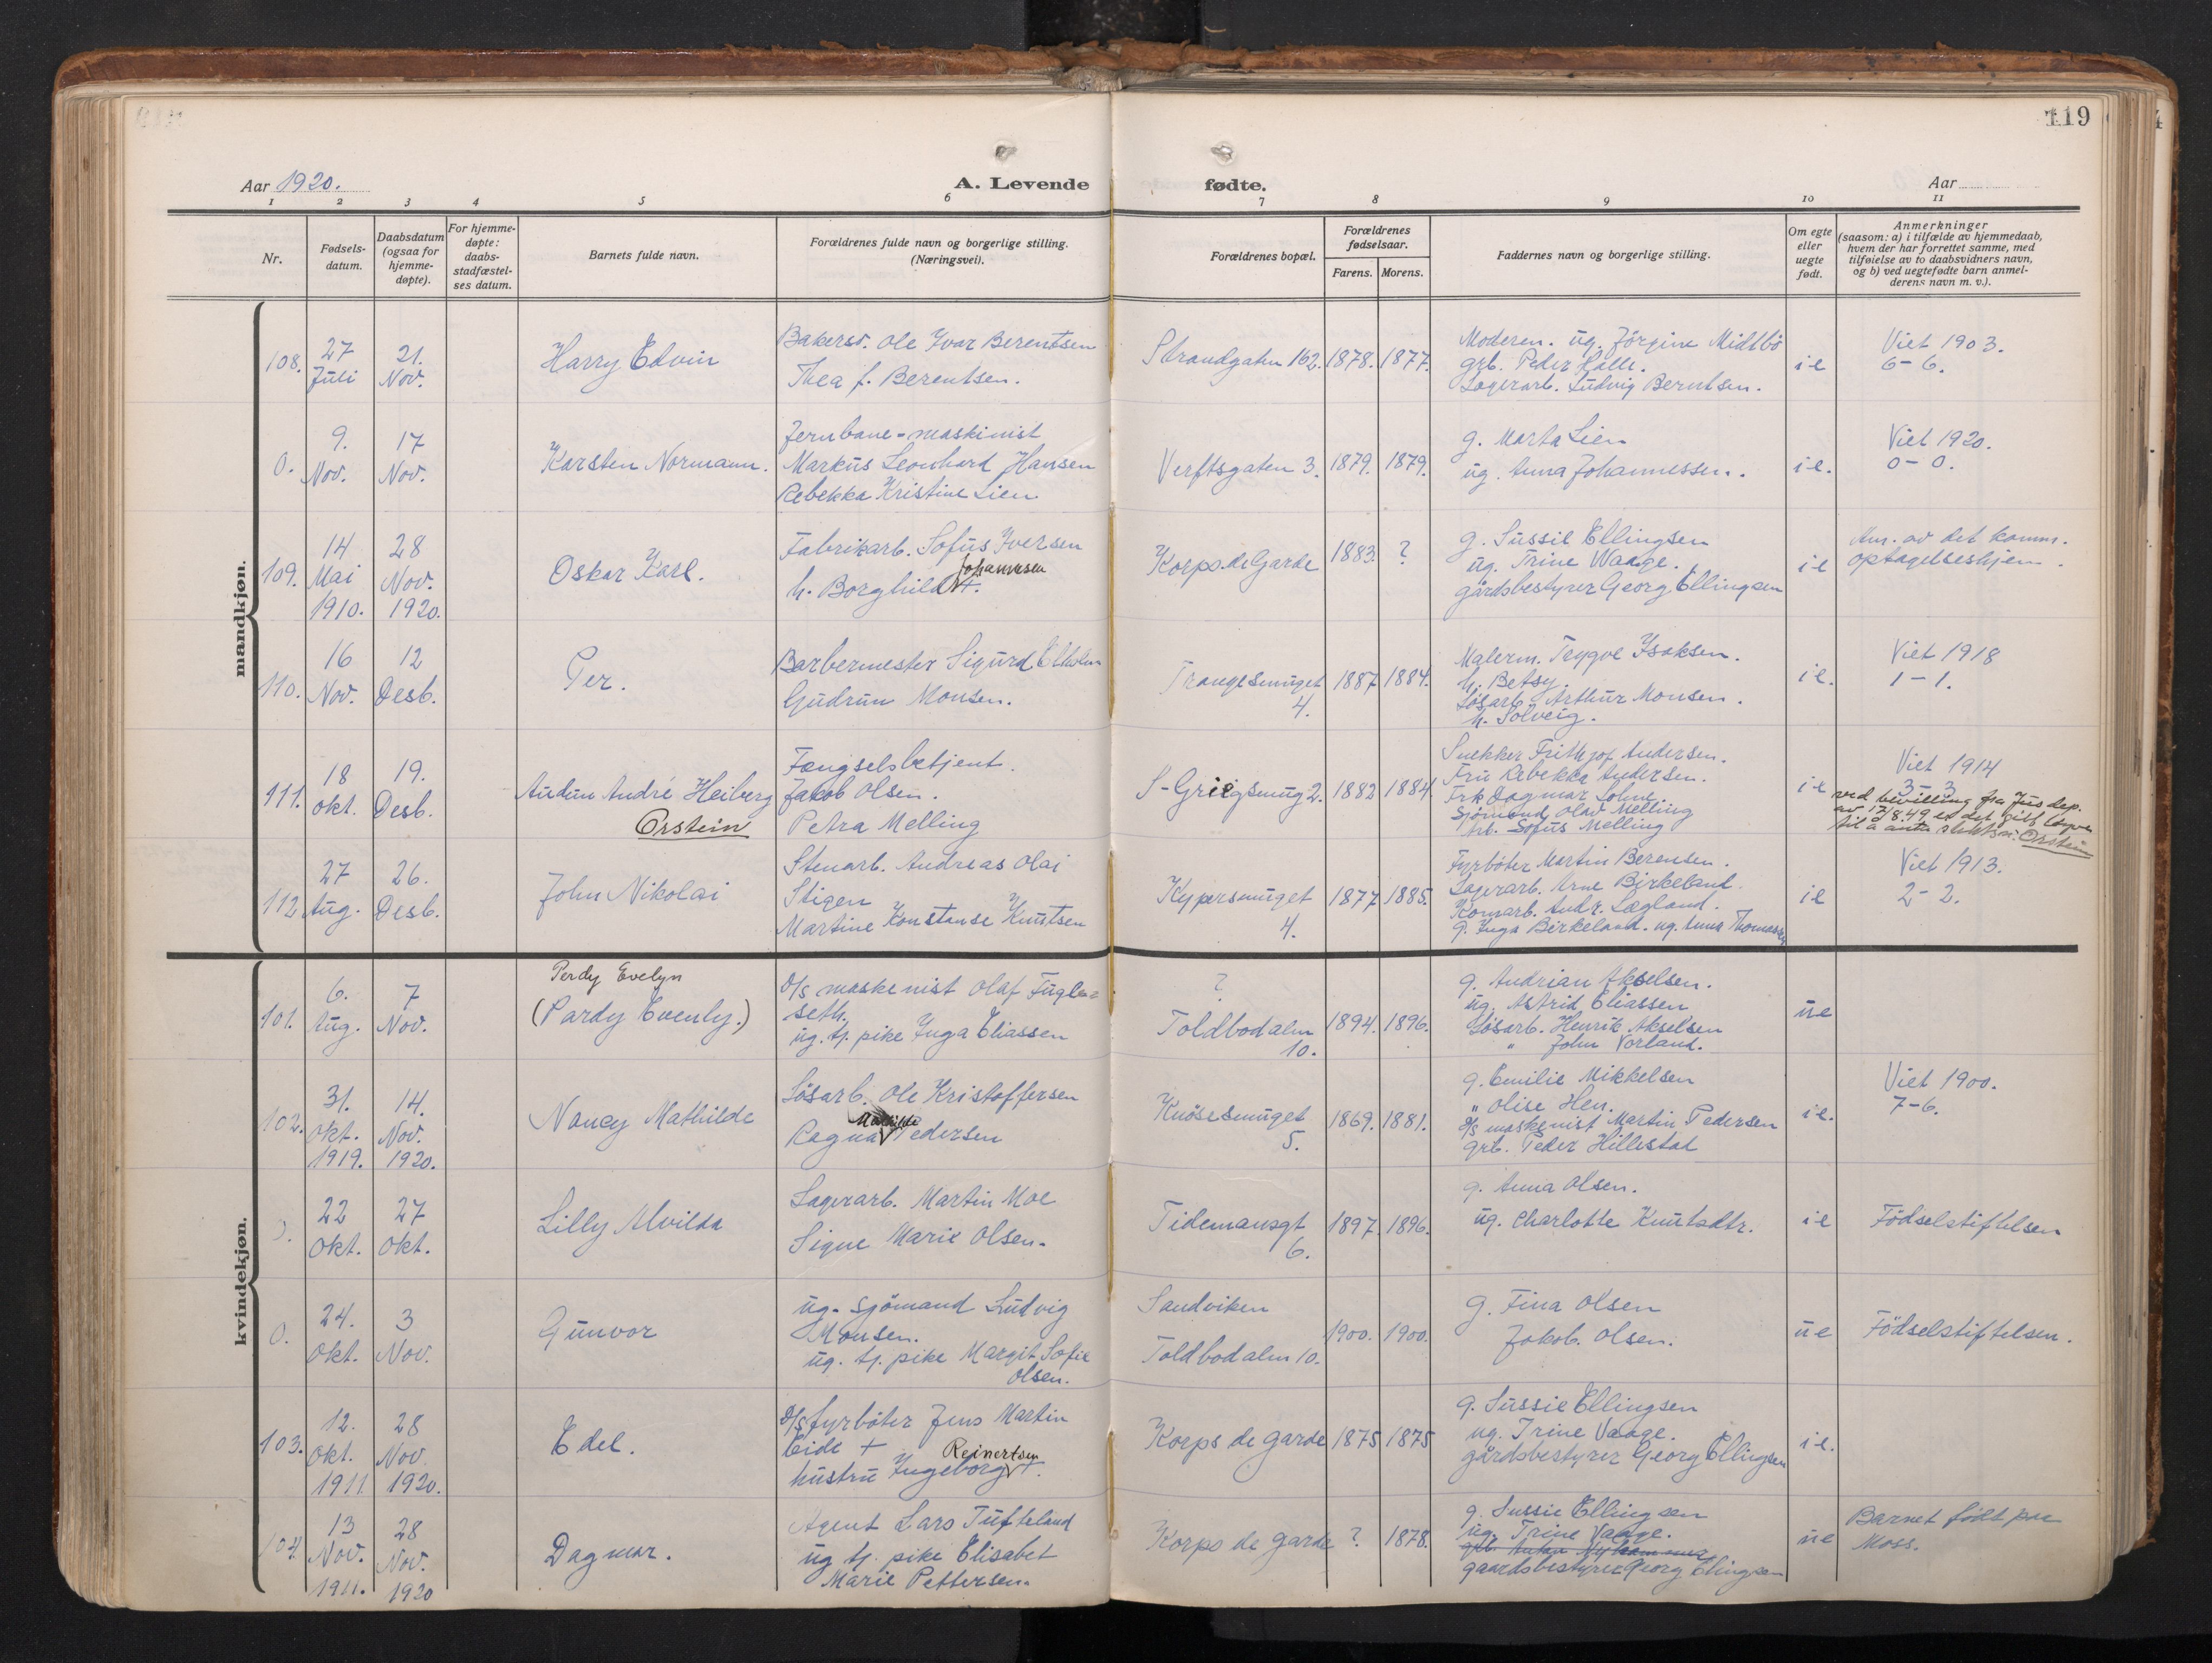 119
Aar 1920.
A. Levende fødte.
Aar
1 2 3 4 5 6 7 8 9 10 11
Nr.
Fødsels-datum.
Daabsdatum (ogsaa for hjemme-døpte).
For hjemme-døpte: daabs-stadfæstel-ses datum.
Barnets fulde navn.
Forældrenes fulde navn og borgerlige stilling.
(Næringsvei).
Forældrenes bopæl.
Forældrenes fødselsaar.
Farens. Morens.
Faddernes navn og borgerlige stilling.
Om egte eller uegte født.
Anmerkninger
(saasom: a) i tilfælde av hjemmedaab,
hvem der har forrettet samme, med
tilføielse av to daabsvidners navn,
og b) ved uegtefødte barn anmel-
derens navn m. v.).
mandkjøn.
108.
27 Juli
21. Nov.
Harry Edvin
Bakersv. Ole Ivar Berentsen
Thea f. Berentsen.
Strandgaten 162.
1878. 1877.
Moderen. ug. Jörgine Midtbö
grb. Peder Halle.
Lagerarb. Ludvig Berntsen.
i e
Viet 1903.
6-6.
0.
9. Nov.
17 Nov.
Karsten Normann.
Jernbane-maskinist
Markus Leonhard Hansen
Rebekka Kristine Lien
Verftsgaten 3.
1879. 1879.
g. Marta Lien
ug. Anna Johannessen.
i e.
Viet 1920.
0-0.
109.
14 Mai 1910.
28 Nov. 1920.
Oskar Karl.
Fabrikarb. Sofus Iversen
Johannesen
h. Borghild +.
Korps.de Garde
1883. ?
g. Sussie Ellingsen
ug. Trine Waage.
gårdsbestyrer Georg Ellingsen
i e
Anm. av det komm.
optagelseshjem.
110.
16 Nov.
12 Desb.
Per.
Barbermester Sigurd
Gudrun Monsen.
Trangesmuget
4.
1887 1884.
Malerm. Trygve Isaksen.
h. Betsy.
Løsarb. Arthur Monsen.
h. Solveig.
i e.
Viet 1918
1-1.
111.
18 Okt.
19. Desb.
Audun André Heiberg
Orstein
Fængselsbetjent.
Jakob Olsen.
Petra Melling
S-Griegsmug 2.
1882 1884.
Snekker Frithjof Andersen.
Fru Rebekka Andersen.
Frk Dagmar Lohne
Sjömand Olav Melling
Arb. Sofus Melling
i e
Viet 1914
3-3
ved bevilling fra Jus dep.
av 17/8.49 er det gitt
til å anta slektsn: Orstein
112
27 Aug.
26. Desb.
John Nikolai
Stenarb. Andreas Olai
Stigen
Martine Konstanse Knutsen
Kypersmuget
4.
1877 1885.
Fyrböter Martin Berensen.
Lagerarb. Arne Birkeland.
Komarb. Andr. Lægland.
g. Inga Birkeland. ug. Anna Thomassen
i e
Viet 1913.
2-2.
kvindekjøn.
101.
6. Aug.
7 Nov.
Perdy Evelyn
(Pardy Evenly.)
D/s maskenist Olaf Fugle=
seth.
ug. tj. pike Inga Eliassen
?
Toldbodalm
10.
1894. 1896.
g. Andrian Akselsen.
ug. Astrid Eliassen
Løsarb. Henrik Akselsen
" John Vorland.
ue
102.
31. Okt. 1919.
14. Nov. 1920.
Nancy Mathilde
Løsarb. Ole Kristoffersen
Mathilde
Ragna Pedersen
Knösesmuget
5.
1869. 1881.
g. Emilie Mikkelsen
" Olise Hen.
D/s maskenist Martin Pedersen
grb. Peder Hillestad
i e.
Viet 1900.
7-6.
0.
22 Okt.
27 Okt.
Lilly Alvilda
Lagerarb. Martin Moe
Signe Marie Olsen.
Tidemansgt
6.
1897. 1896.
g. Anna Olsen.
ug. Charlotte Knutsdtr.
i e
Födselstiftelsen
0.
24. Okt.
3 Nov.
Gunvor
ug. sjömand Ludvig
Monsen.
ug. tj. pike Margit Sofie
Olsen.
Sandviken
Toldbodalm 10.
1900. 1900.
g. Fina Olsen
Jakob. Olsen.
ue
Födselstiftelsen.
103.
12. Okt. 1911.
28 Nov 1920.
Edel.
D/s fyrböter Jens Martin
Eide +
Reinertsen
hustru Ingeborg +.
Korps de Garde
1875 1875
g. Sussie Ellingsen
ug. Trine Vaage.
gårdsbestyrer Georg Ellingsen
i e.
104.
13 Nov. 1911.
28 Nov. 1920
Dagmar.
Agent Lars Tufteland
ug tj. pike Elisabet
Marie Pettersen.
Korps de garde
? 1878.
g. Sussie Ellingsen
ug. Trine Vaage.
gaardsbestyrer Georg Elingsen
ue
Barnet födt paa
Moss.